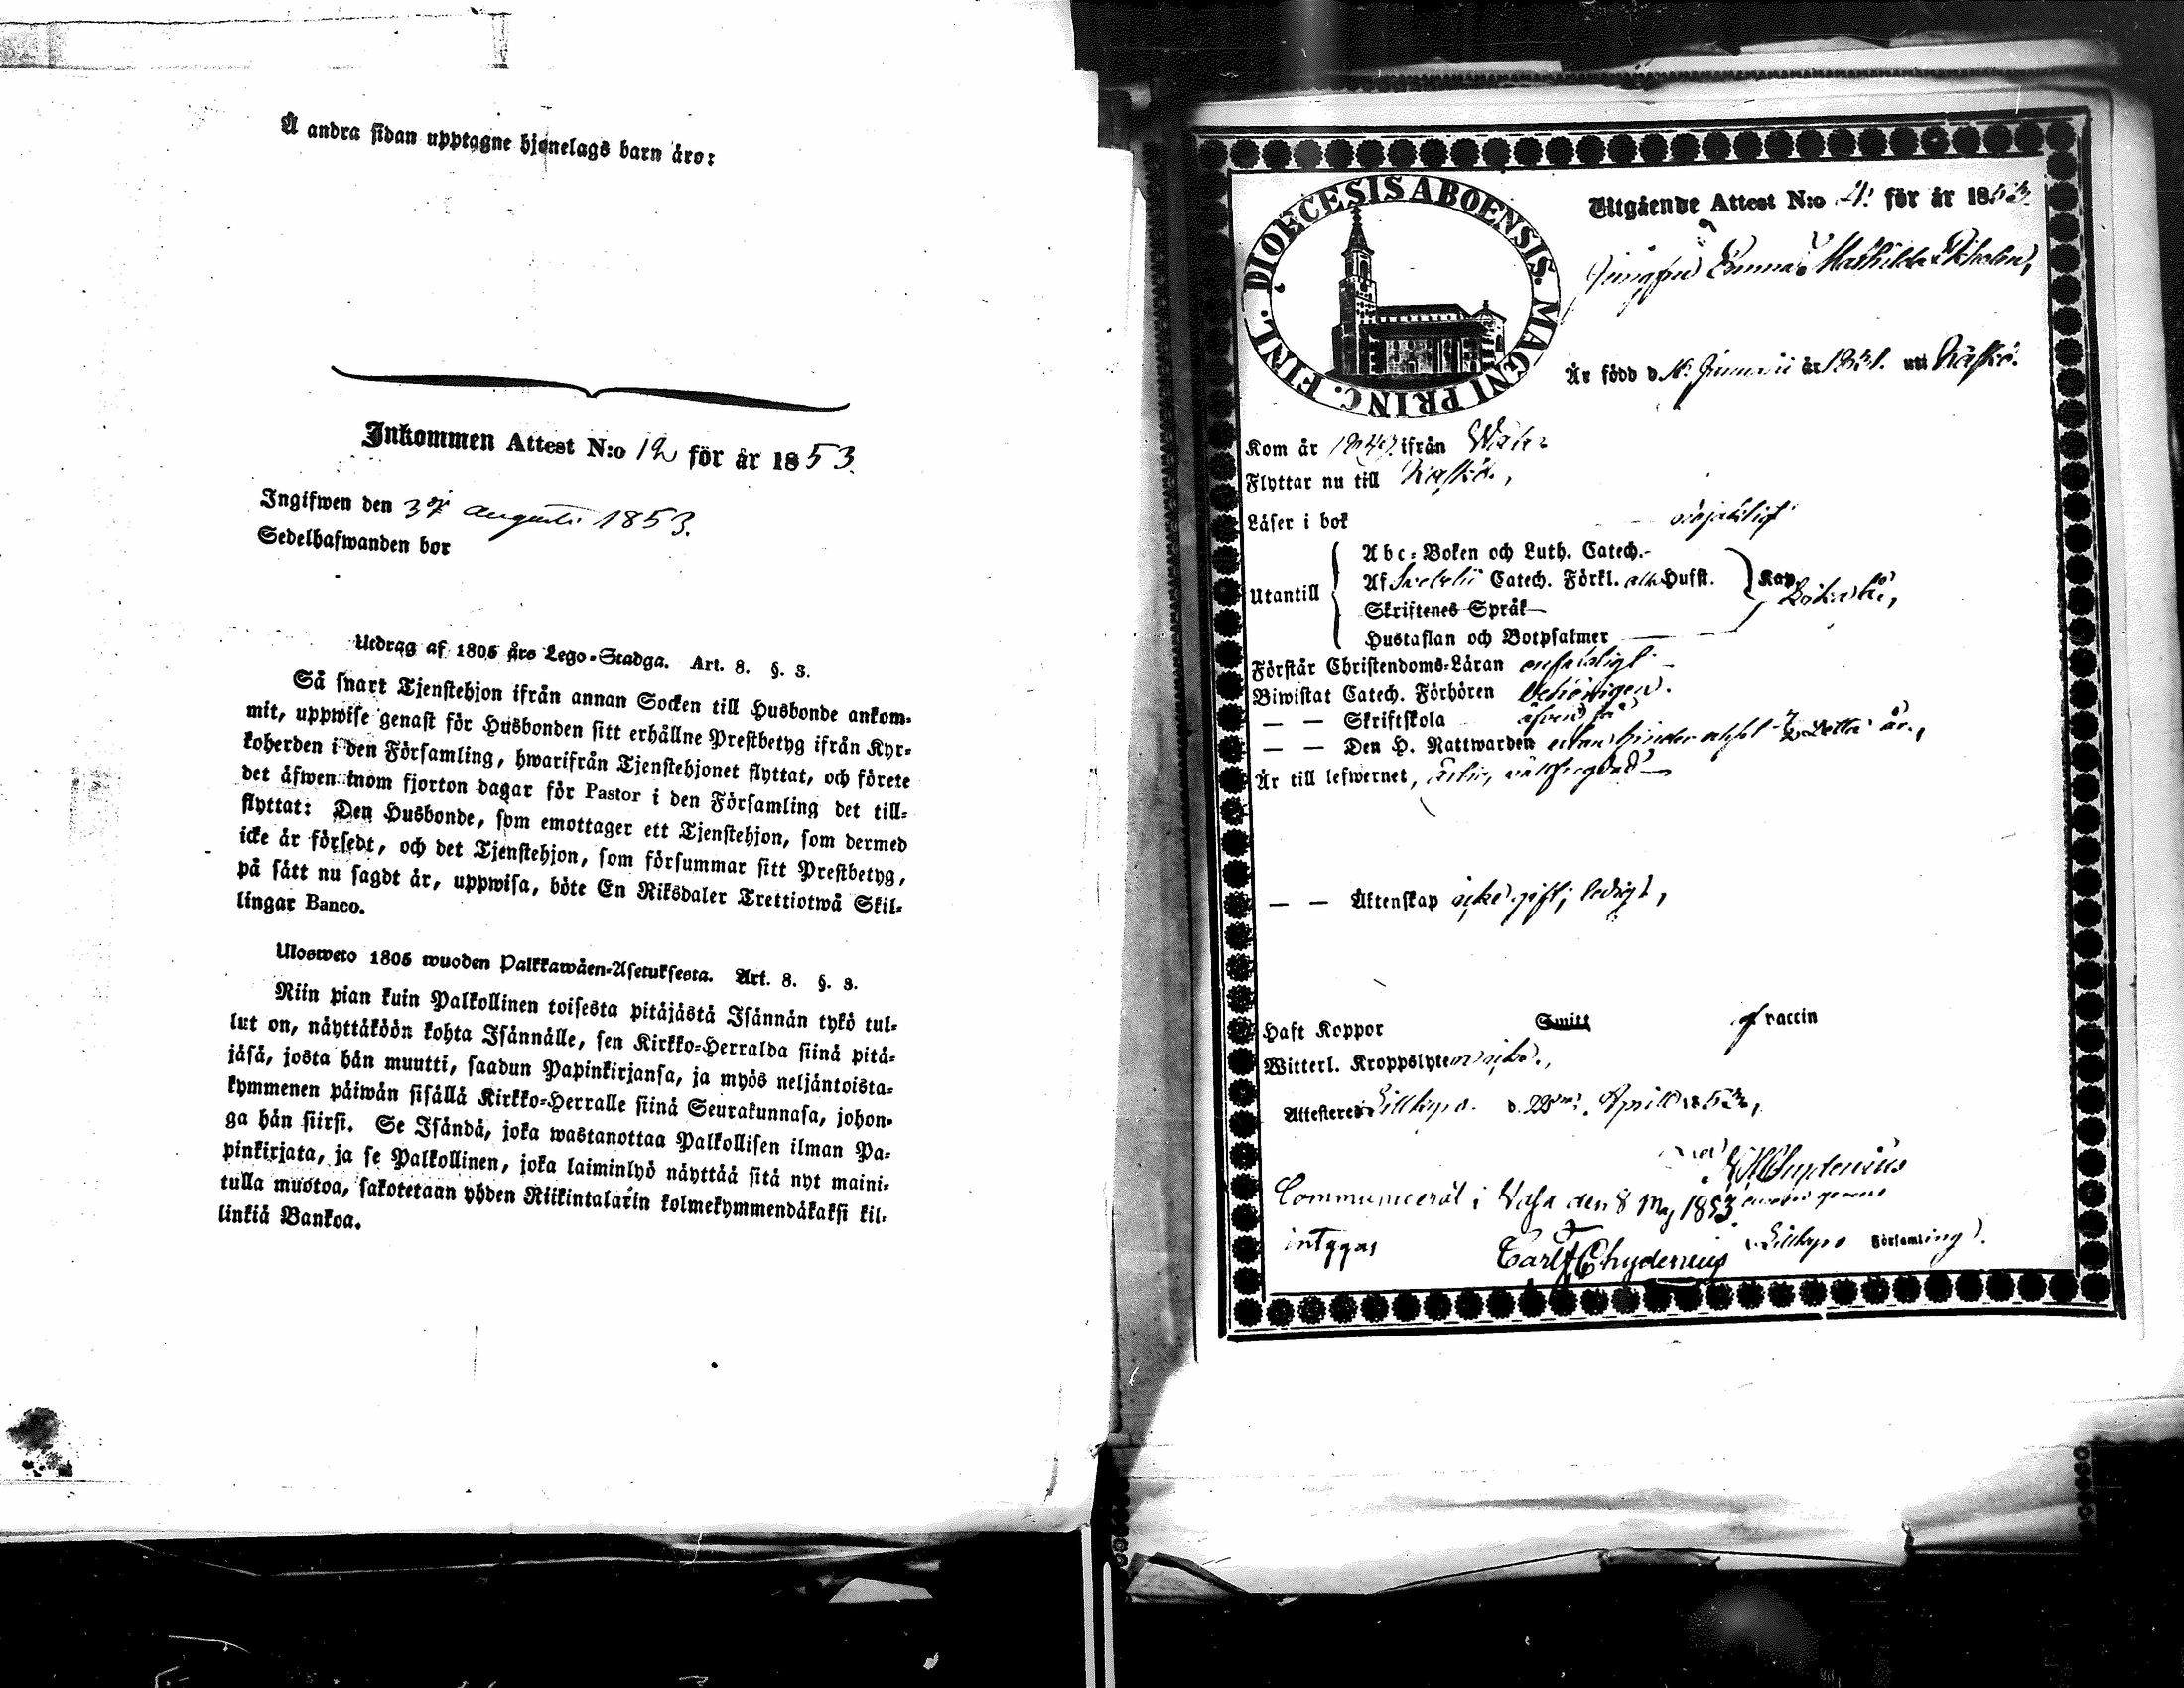 Å andra sidan upptagne hjonelags barn äro:
Inkommen Attest N:o 12 för år 1853.
Ingifwen den 3dj augusti 1853.
Sedelhafwanden bor
Utdrag af 1805 års Lego-Stadga. Art. 8. §. 3.
Så snart Tjenstehjon ifrån annan Socken till Husbonde ankom-
mit, uppwise genast för Husbonden sitt erhållne Prestbetyg ifrån Kyr-
koherden i den Församling, hwarifrån Tjenstehjonet flyttat, och förete
det äfwen inom fjorton dagar för Pastor i den Församling det till-
flyttat: Den Husbonde, som emottager ett Tjenstehjon, som dermed
icke är försedt, och det Tjenstehjon, som försummar sitt Prestbetyg,
på sätt nu sagdt är, uppwisa, böte En Riksdaler Trettiotwå Skil-
lingar Banco.
Ulosweto 1805 wuoden Palkkawäen-Asetuksesta. Art. 8. §. 3.
Niin pian kuin Palkollinen toisesta pitäjästä Isännän tykö tul-
lut on, näyttäköön kohta Isännälle, sen Kirkko-Herralda siinä pitä-
jäsä, josta hän muutti, saadun Papinkirjansa, ja myös neljäntoista-
kymmenen päiwän sisällä Kirkko-Herralle siinä Seurakunnasa, johon-
ga hän siirsi. Se Isändä, joka wastanottaa Palkollisen ilman Pa-
pinkirjata, ja se Palkollinen, joka laiminlyö näyttää sitä nyt maini-
tulla muotoa, sakotetaan yhden Riikintalarin kolmekymmendäkaksi kil-
linkiä Bankoa.
DIOECESIS ABOENSIS. MAGNI PRINC. FINL.
Utgående Attest N:o 4. för år 1853.
Jungfru Emma Mathilda Ekholm,
Är född d. Januarii år 1831. uti Kaskö.
Kom år 1849 ifrån Wasa
Flyttar nu till Kaskö,
Läser i bok
Utantill
Abc-Boken och Luth. Catech.
Af Svebelii Catech. Förkl. alla Hufst.
Skriftenes Språk
Hustaflan och Botpsalmer
Kap.
Förstår Christendoms-Läran enfaldigt
Biwistat Catech. Förhören behörigen.
— — Skriftskola äfven så
— — Den H. Nattwarden utan hinder detta år,
Är till lefwernet,
— — Äktenskap icke gift; ledig,
Haft Koppor Smitt af vaccin
Witterl. Kroppslyten icke,
Attesteres Lillkyro d. 22 April 1853,
Chydenius
Communicerat i Vasa den 8 Maj 1853
intygas Carl F Chydenius
Lillkyro Församling.